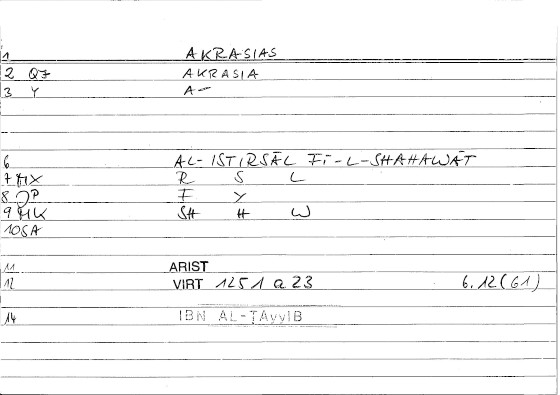 1 AKRASIAS
2 QZ AKRASIA
3 Y A-
6 AL-ISTIRSĀL FI-L-SHAHAWĀT
7 MX R S L
8 JP F Y
9 MK SH H W
10 SA
11 ARIST
12 VIRT 1251 a 23 6.12(61)
14 IBN AL-ṬAyyIB